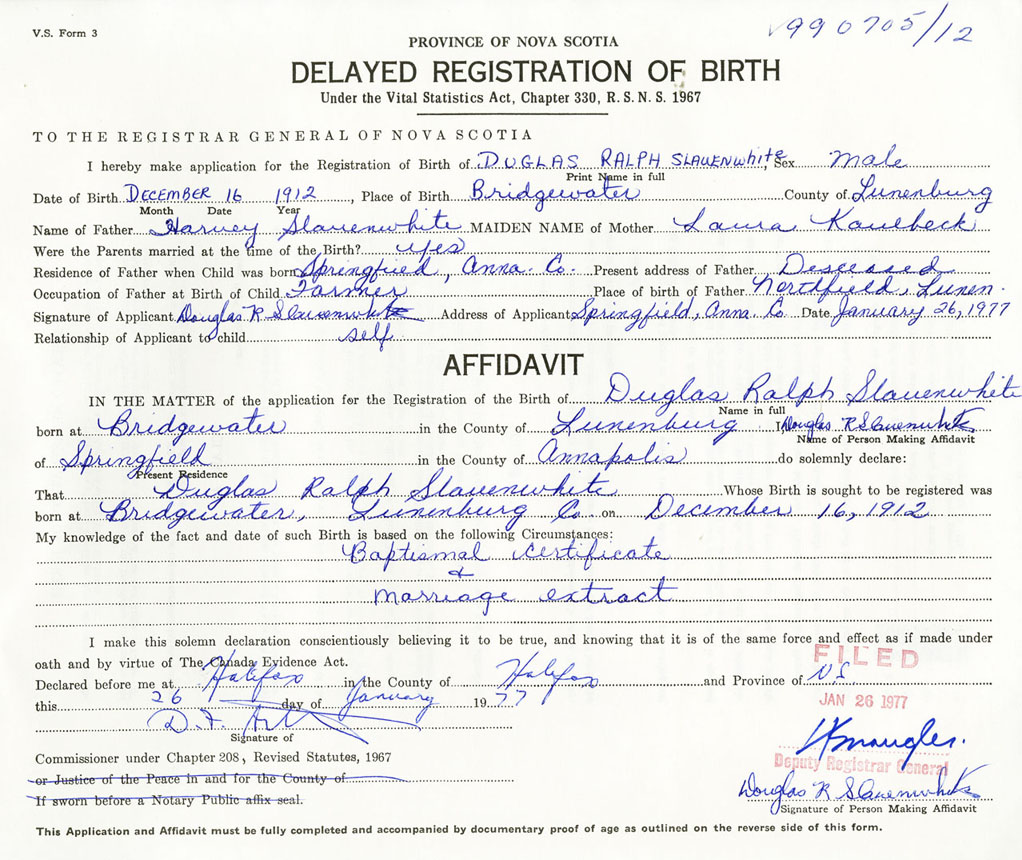 V.S. Form 3
V990705/12
PROVINCE OF NOVA SCOTIA
DELAYED REGISTRATION OF BIRTH
Under the Vital Statistics Act, Chapter 330, R.S.N.S. 1967
TO THE REGISTRAR GENERAL OF NOVA SCOTIA
I hereby make application for the Registration of Birth of DUGLAS RALPH SLAUENWHITE Sex Male
Print Name in full
Date of Birth DECEMBER 16 1912, Place of Birth Bridgewater County of Lunenburg
Month Date Year
Name of Father Harvey Slauenwhite MAIDEN NAME of Mother Laura Kaulbeck
Were the Parents married at the time of the Birth? yes
Residence of Father when Child was born Springfield, Anna. Co. Present address of Father Deseased
Occupation of Father at Birth of Child Farmer Place of birth of Father Northfield, Lunen.
Signature of Applicant Douglas R Slauenwhite Address of Applicant Springfield, Anna. Co. Date January 26, 1977
Relationship of Applicant to child self
AFFIDAVIT
IN THE MATTER of the application for the Registration of the Birth of Duglas Ralph Slauenwhite
Name in full
born at Bridgewater in the County of Lunenburg I Douglas R Slauenwhite
Name of Person Making Affidavit
of Springfield in the County of Annapolis do solemnly declare:
Present Residence
That Duglas Ralph Slauenwhite Whose Birth is sought to be registered was
born at Bridgewater, Lunenburg Co. on December 16, 1912
My knowledge of the fact and date of such Birth is based on the following Circumstances:
Baptismal certificate
&
Marriage extract
I make this solemn declaration conscientiously believing it to be true, and knowing that it is of the same force and effect as if made under
oath and by virtue of The Canada Evidence Act.
FILED
Declared before me at Halifax in the County of Halifax and Province of NS
this 26 day of January 1977
JAN 26 1977
D.F.
Signature of
Commissioner under Chapter 208, Revised Statutes, 1967
Deputy Registrar General
or Justice of the Peace in and for the County of
Douglas R Slauenwhite
If sworn before a Notary Public affix seal.
Signature of Person Making Affidavit
This Application and Affidavit must be fully completed and accompanied by documentary proof of age as outlined on the reverse side of this form.